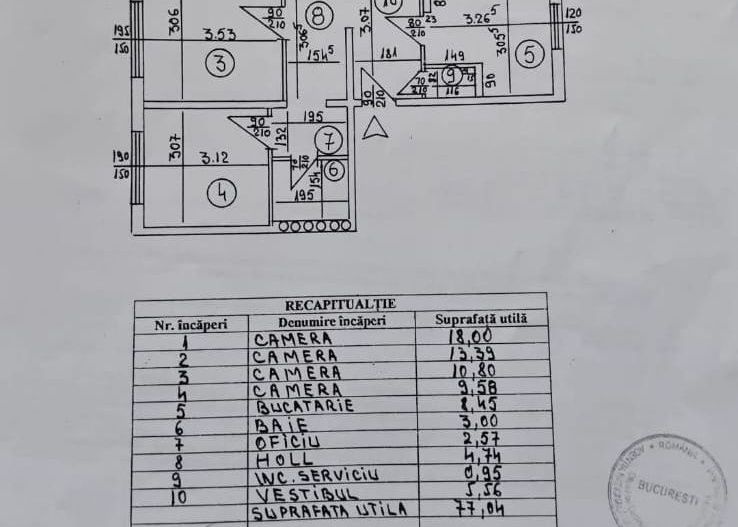 306
90
210
8
306⁵
3.07
10
80
210
23
3.26⁵
120
150
195
150
3.53
3
154⁵
181
149
305⁵
5
70
210
82
9
116
90
90
210
195
307
90
210
132
7
190
150
3.12
4
70
210
154
6
195
RECAPITUALȚIE
Nr. încăperi Denumire încăperi Suprafață utilă
1 CAMERA 18,00
2 CAMERA 13,39
3 CAMERA 10,80
4 CAMERA 9,58
5 BUCATARIE 8,45
6 BAIE 3,00
7 OFICIU 2,57
8 HOLL 4,74
9 WC. SERVICIU 0,95
10 VESTIBUL 5,56
SUPRAFATA UTILA 77,04
ROMÂNIA
BUCUREȘTI